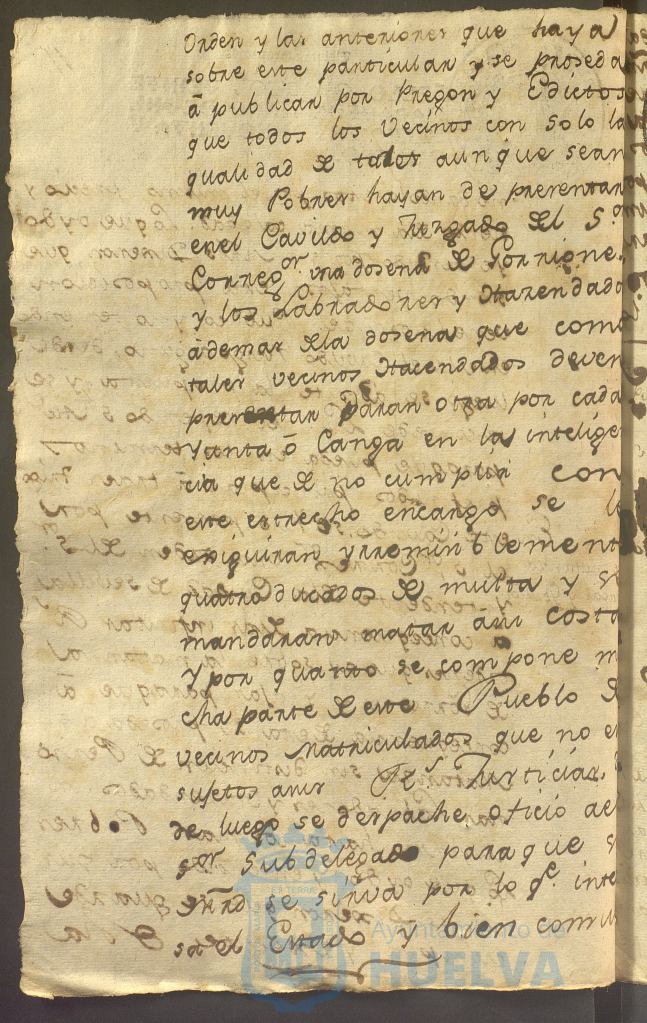 Orden y las anteriores que haya
sobre este particular y se proseda
â publicar por Pregon y Edictos
que todos los Vecinos con solo la
qualidad de tales aunque sean
muy Pobres hayan de presentar
en el Cavildo y Jurgado del S.or
Correg.or una dosena de Gorrione
y los Labradores y Hazendado
âdemas de la dosena que como
tales vecinos Hacendados deven
presentar daran otra por cada
Yunta ô Canga en la inteligen
cia que de no cumplir con
este estrecho encargo se l
exiguiran yrremisiblement
quatro ducados de multa y se
mandaran matar âsu costa
Y por quanto se compone m
cha parte de este Pueblo de
vecinos Matriculados que no e
sujetos a Justicias
de luego se despache oficio al
s.or Subdelegado para que s
se sirva por lo q.e inte
sa el Estado y bien comu
Ayuntamiento de
HUELVA